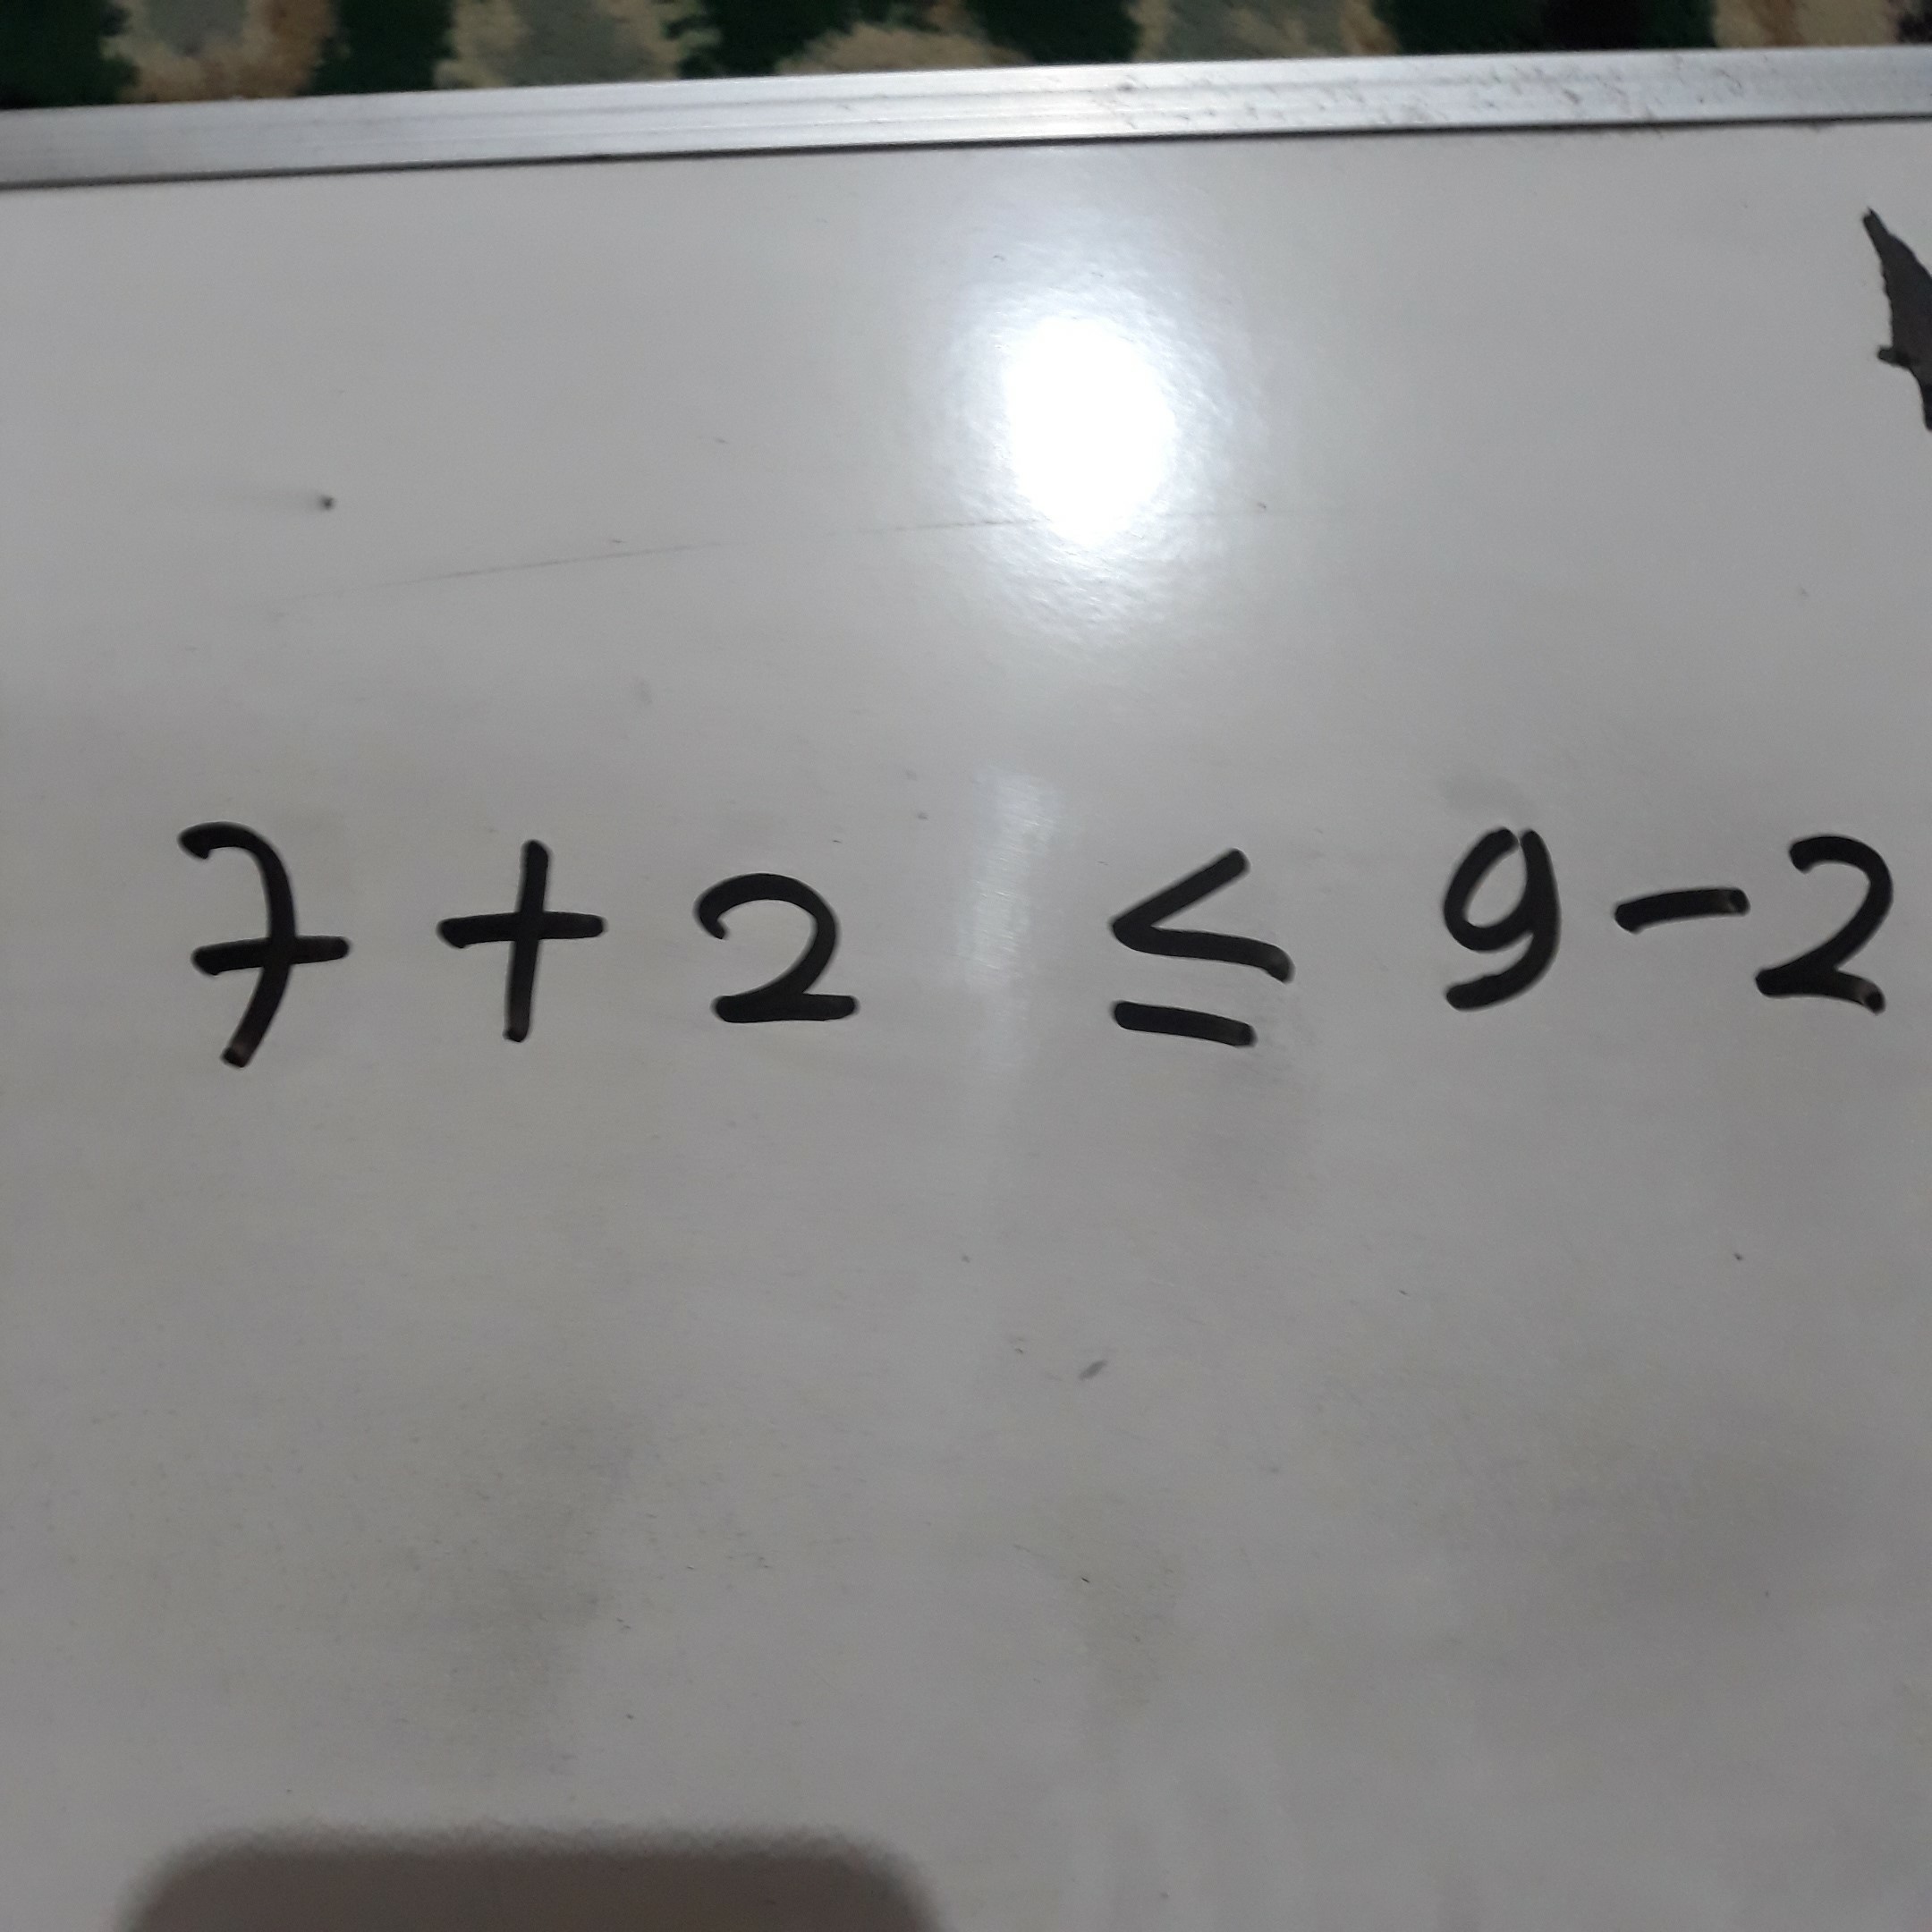 7 + 2 ≤ 9 - 2